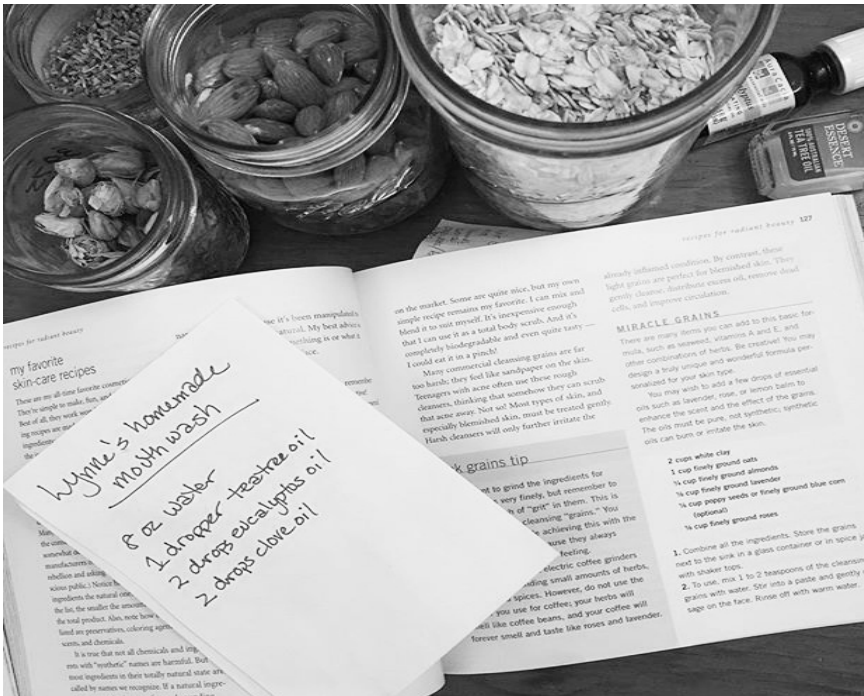 AuraCacia
DESERT
ESSENCE
100% AUSTRALIAN
TEA TREE OIL
recipes for radiant beauty 127
recipes for radiant beauty
my favorite
skin-care recipes
These are my all-time favorite
They're simple to make, fun, and
Best of all, they work
ing recipes are
ingredients
the
it's been manipulated
natural. My best advice
something is or what it
Lynne's homemade
mouthwash
8 oz water
1 dropper teatree oil
2 drops eucalyptus oil
2 drops clove oil
manufacturers
rebellion and asking
scious public.) Notice
ingredients the natural
the list, the smaller the amount
the total product. Also, note how
listed are preservatives, coloring
scents, and chemicals.
It is true that not all chemicals and
ents with "synthetic" names are harmful. But
most ingredients in their totally natural state are
called by names we recognize. If a natural ingre-
on the market. Some are quite nice, but my own
simple recipe remains my favorite. I can mix and
blend it to suit myself. It's inexpensive enough
that I can use it as a total body scrub. And it's
completely biodegradable and even quite tasty —
I could eat it in a pinch!
Many commercial cleansing grains are far
too harsh; they feel like sandpaper on the skin.
Teenagers with acne often use these rough
cleansers, thinking that somehow they can scrub
that acne away. Not so! Most types of skin, and
especially blemished skin, must be treated gently.
Harsh cleansers will only further irritate the
grains tip
to grind the ingredients for
very finely, but remember to
of "grit" in them. This is
cleansing "grains." You
achieving this with the
they always
feeling.
electric coffee grinders
small amounts of herbs,
spices. However, do not use the
you use for coffee; your herbs will
like coffee beans, and your coffee will
forever smell and taste like roses and lavender.
already inflamed condition. By contrast, these
light grains are perfect for blemished skin. They
gently cleanse, distribute excess oil, remove dead
cells, and improve circulation.
MIRACLE GRAINS
There are many items you can add to this basic for-
mula, such as seaweed, vitamins A and E, and
other combinations of herbs. Be creative! You may
design a truly unique and wonderful formula per-
sonalized for your skin type.
You may wish to add a few drops of essential
oils such as lavender, rose, or lemon balm to
enhance the scent and the effect of the grains.
The oils must be pure, not synthetic; synthetic
oils can burn or irritate the skin.
2 cups white clay
1 cup finely ground oats
cup finely ground almonds
cup finely ground lavender
cup poppy seeds or finely ground blue corn
(optional)
cup finely ground roses
1. Combine all the ingredients. Store the grains
next to the sink in a glass container or in spice
with shaker tops.
2. To use, mix 1 to 2 teaspoons of the cleansing
grains with water. Stir into a paste and gently
sage on the face. Rinse off with warm water.